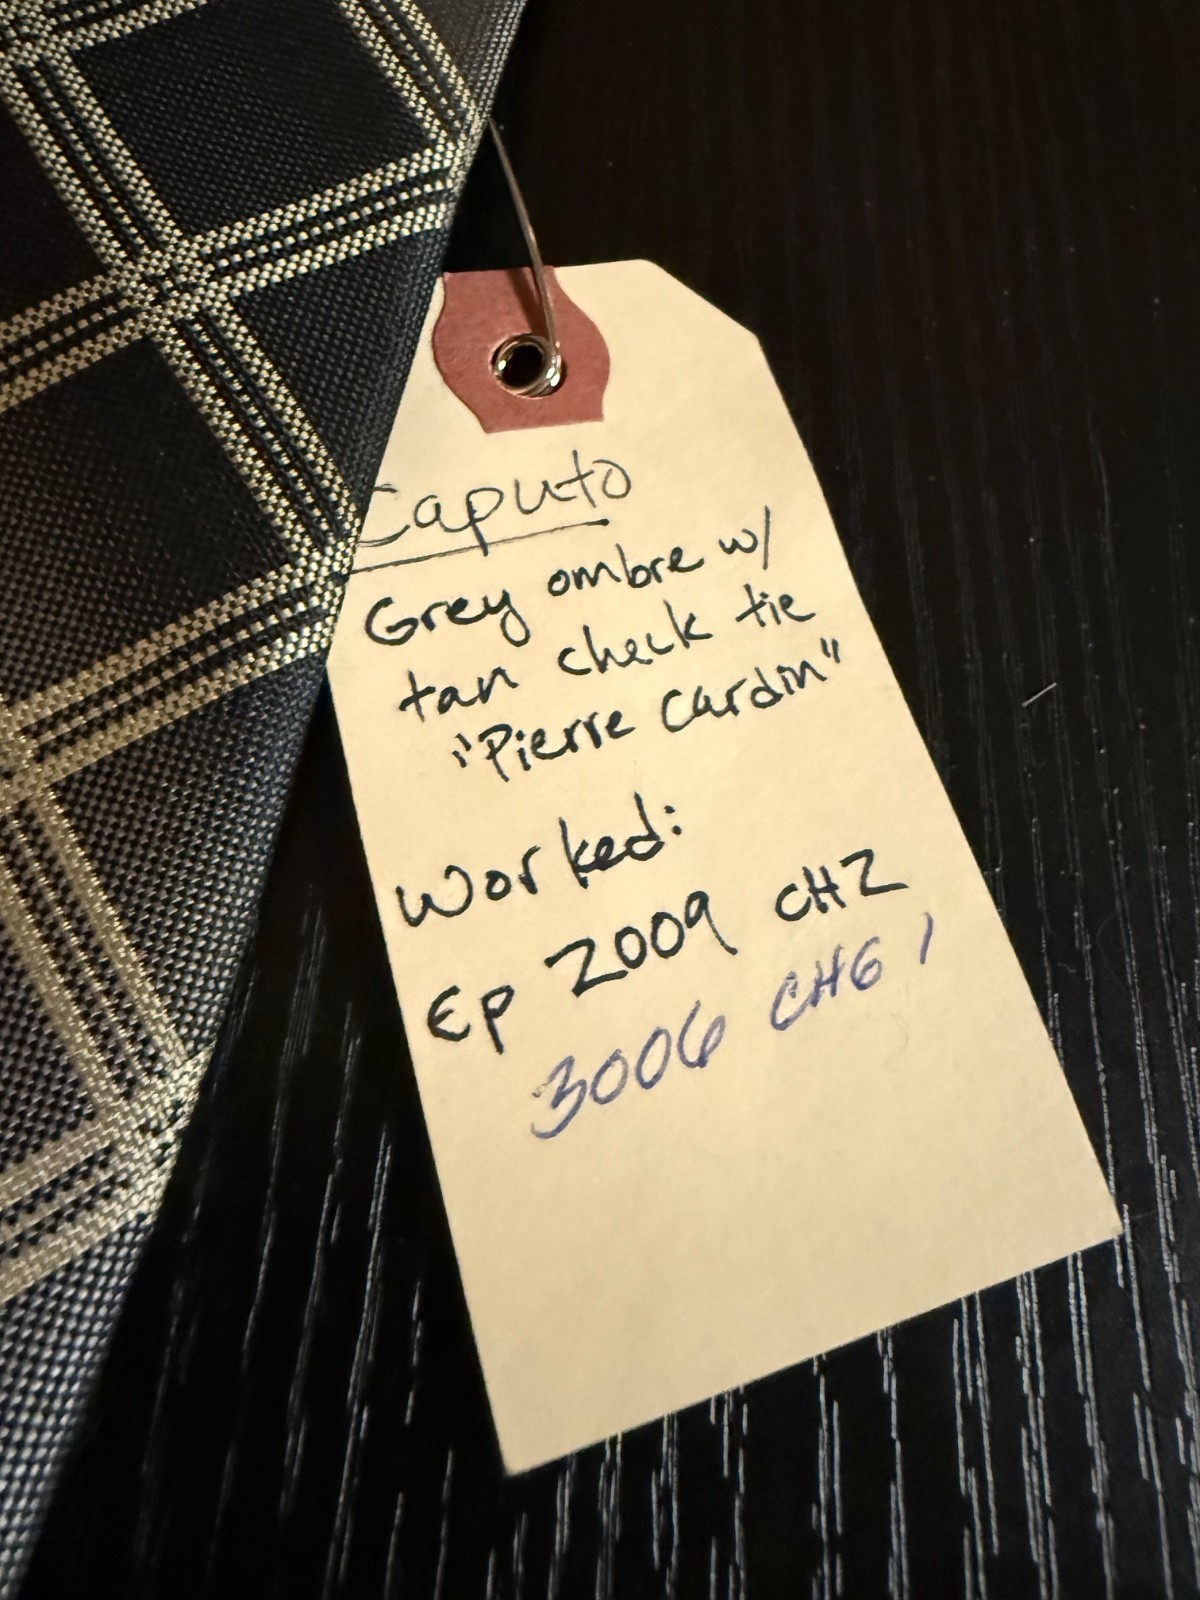 Caputo
Grey ombre w/
tan check tie
"Pierre Cardin"
Worked:
Ep 2009 CH2
3006 CH6 /